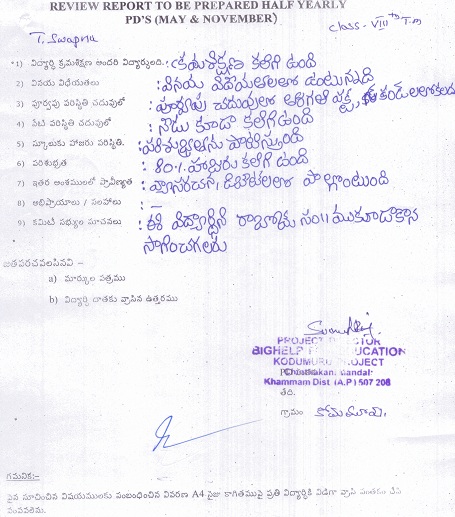 REVIEW REPORT TO BE PREPARED HALF YEARLY
PD'S (MAY & NOVEMBER)
Class - VIII th T.m
T. Swapna
*1) విద్యార్థి క్రమశిక్షణ అందరి విద్యార్థులది. : క్రమశిక్షణ కలిగి ఉంది
2) వినయ విధేయతలు : వినయ విధేయతలలో ఉంటున్నది
3) పూర్వపు పరిస్థితి చదువులో : పూర్వపు చదువులలో
4) నేటి పరిస్థితి చదువులో : నేడు కూడా కలిగి ఉంది
5) స్కూలుకు హాజరు పరిస్థితి. : పరిశుభ్రతను పాటిస్తుంది
6) పరిశుభ్రత : 80% హాజరు కలిగి ఉంది
7) ఇతర అంశములలో ప్రావీణ్యత : వ్యాసరచన, డిబేట్‌లలో పాల్గొంటుంది
8) అభిప్రాయాలు / సలహాలు : —
9) కమిటి సభ్యుల సూచనలు : ఈ విద్యార్థిని రాబోయే సం॥ముకూడా
సాగించగలరు
జతపరచవలసినవి –
a) మార్కుల పత్రము
b) విద్యార్థి దాతకు వ్రాసిన ఉత్తరము
PROJECT DIRECTOR
BIGHELP FOR EDUCATION
KODUMURU PROJECT
Chinthakani Mandal
Khammam Dist (A.P) 507 208
తేది.
గ్రామం
గమనిక:–
పైన సూచించిన విషయములకు సంబంధించిన వివరణ A4 సైజు కాగితముపై ప్రతి విద్యార్థికి విడిగా వ్రాసి సంతకం చేసి
పంపవలెను.